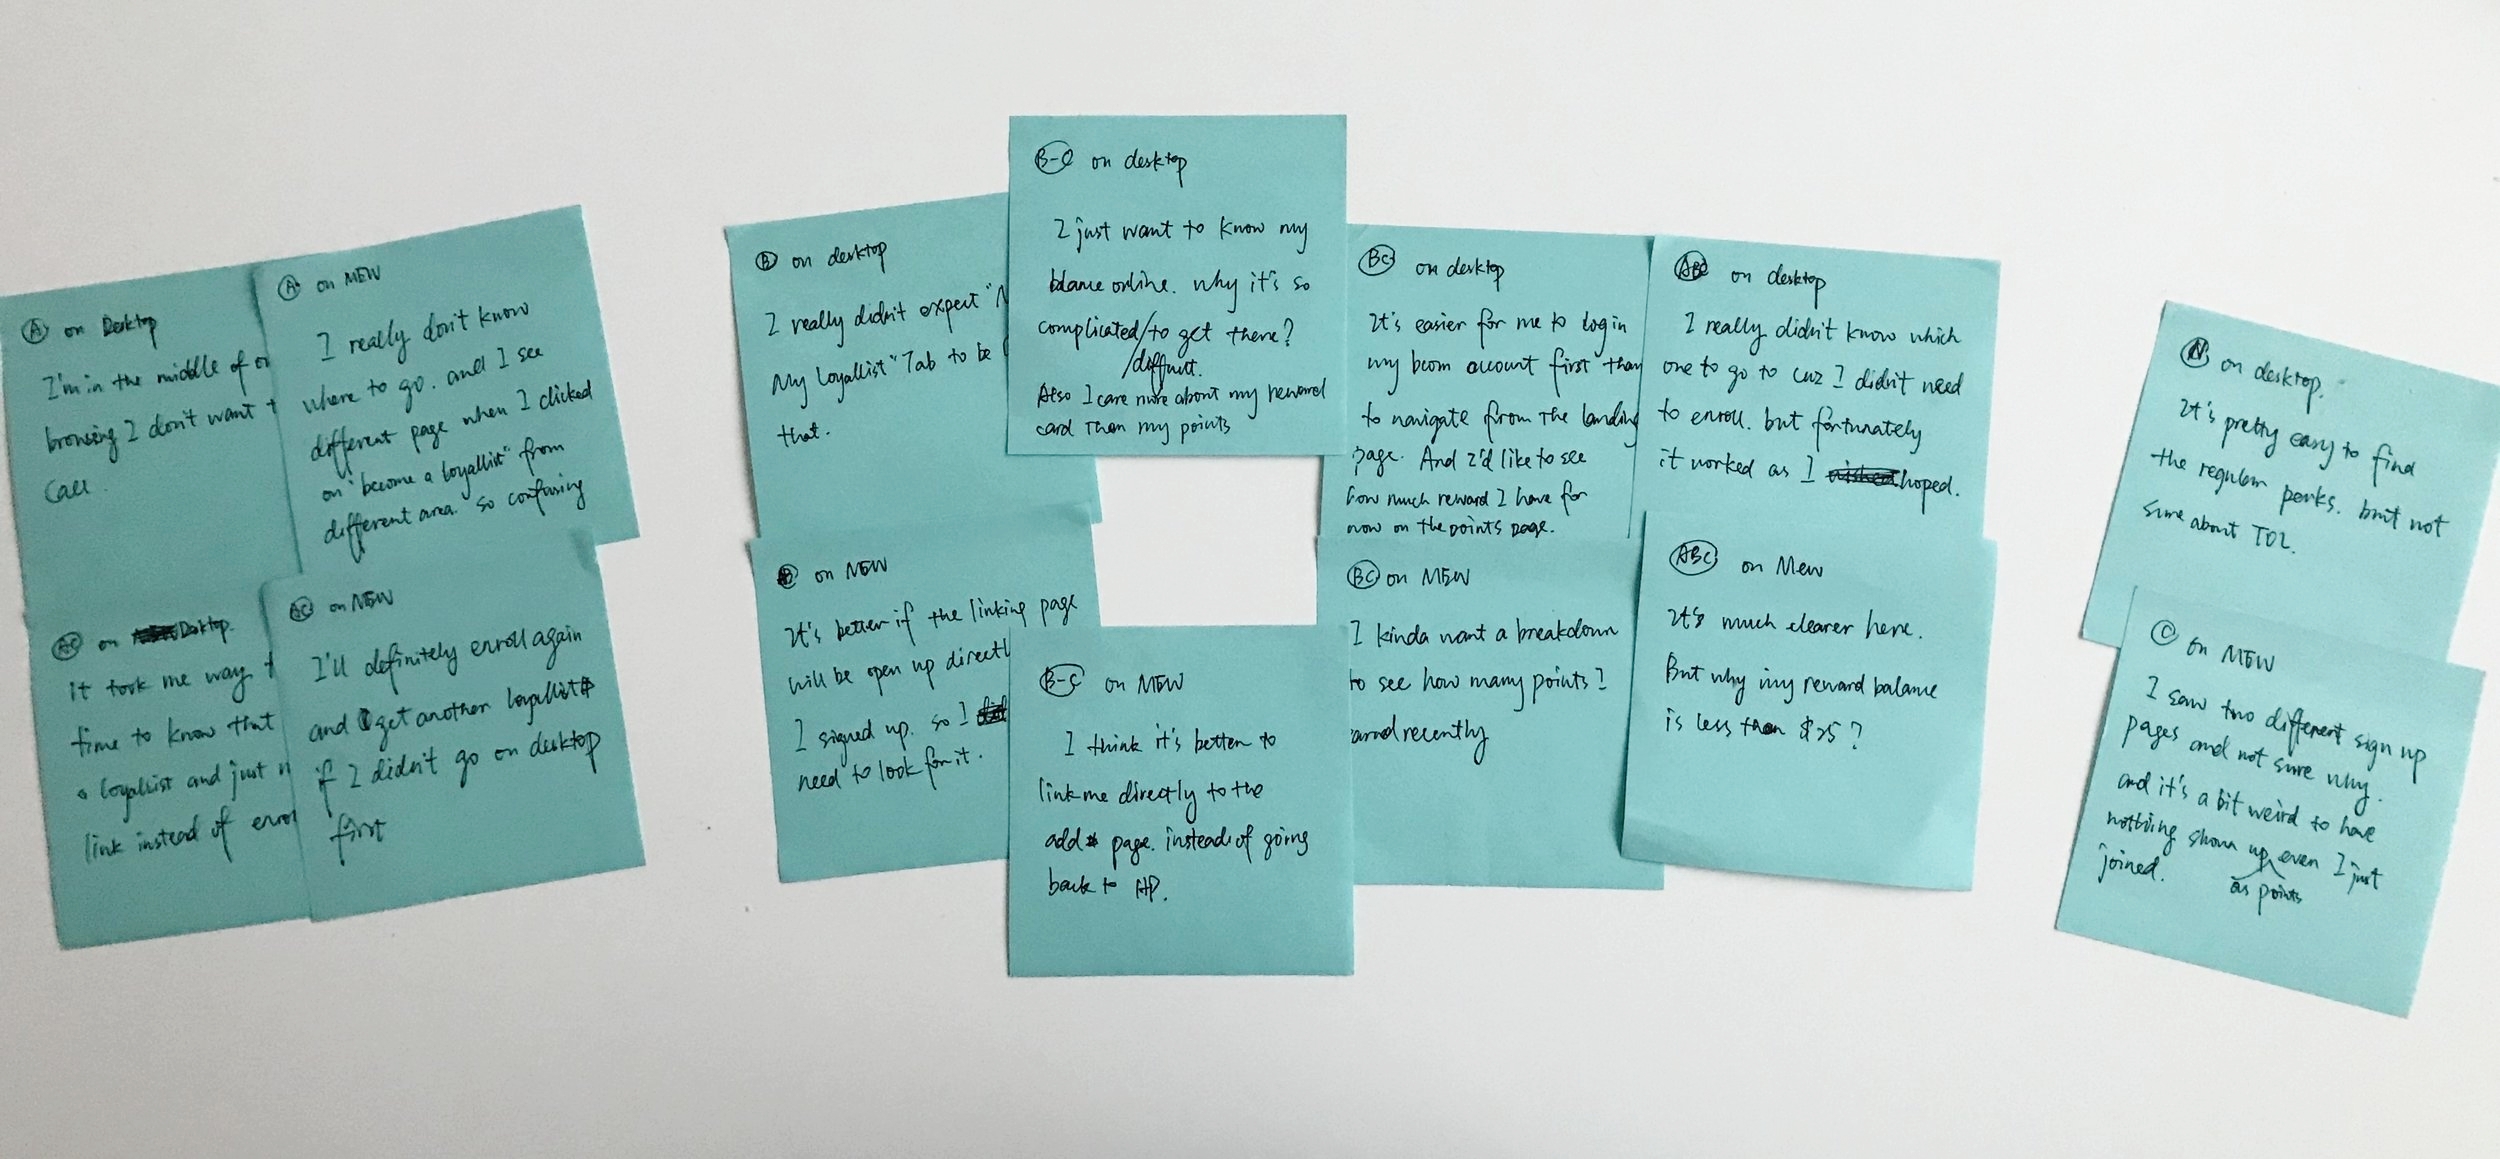 A on Desktop
I'm in the middle of
browsing I don't want
call.
A on MEW
I really don't know
where to go. and I see
different page when I clicked
on "become a loyallist" from
different area. so confusing
AC on Desktop.
it took me way
time to know that
a loyallist and just
link instead of
AC on MEW
I'll definitely enroll again
and get another loyallist#
if I didn't go on desktop
first
B on desktop
I really didn't expect "
My Loyallist" Tab to be
that.
B on MEW
It's better if the linking page
will be open up
I signed up. so I
need to look for it.
on desktop
I just want to know my
online. why it's so
complicated/to get there?
Also I care more about my reward
card than my points
B-C on MEW
I think it's better to
link me directly to the
add# page. instead of going
back to HP.
BC on desktop
It's easier for me to login
my bcom account first than
to navigate from the landing
page. And I'd like to see
how much reward I have for
now on the points page.
BC on MEW
I kinda want a breakdown
to see how many points I
recently
ABC on desktop
I really didn't know which
one to go to cuz I didn't need
to enroll. but fortunately
it worked as I hoped.
ABC on Mew
It's much clearer here.
But why my reward balance
is less than $25?
N on desktop.
It's pretty easy to find
the regular perks. but not
sure about TOL.
C on MEW
I saw two different sign up
pages and not sure why.
and it's a bit weird to have
nothing shown up even I just
as points
joined.